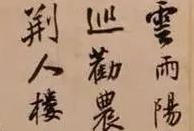 雲雨陽
巡勸農
荆人樓